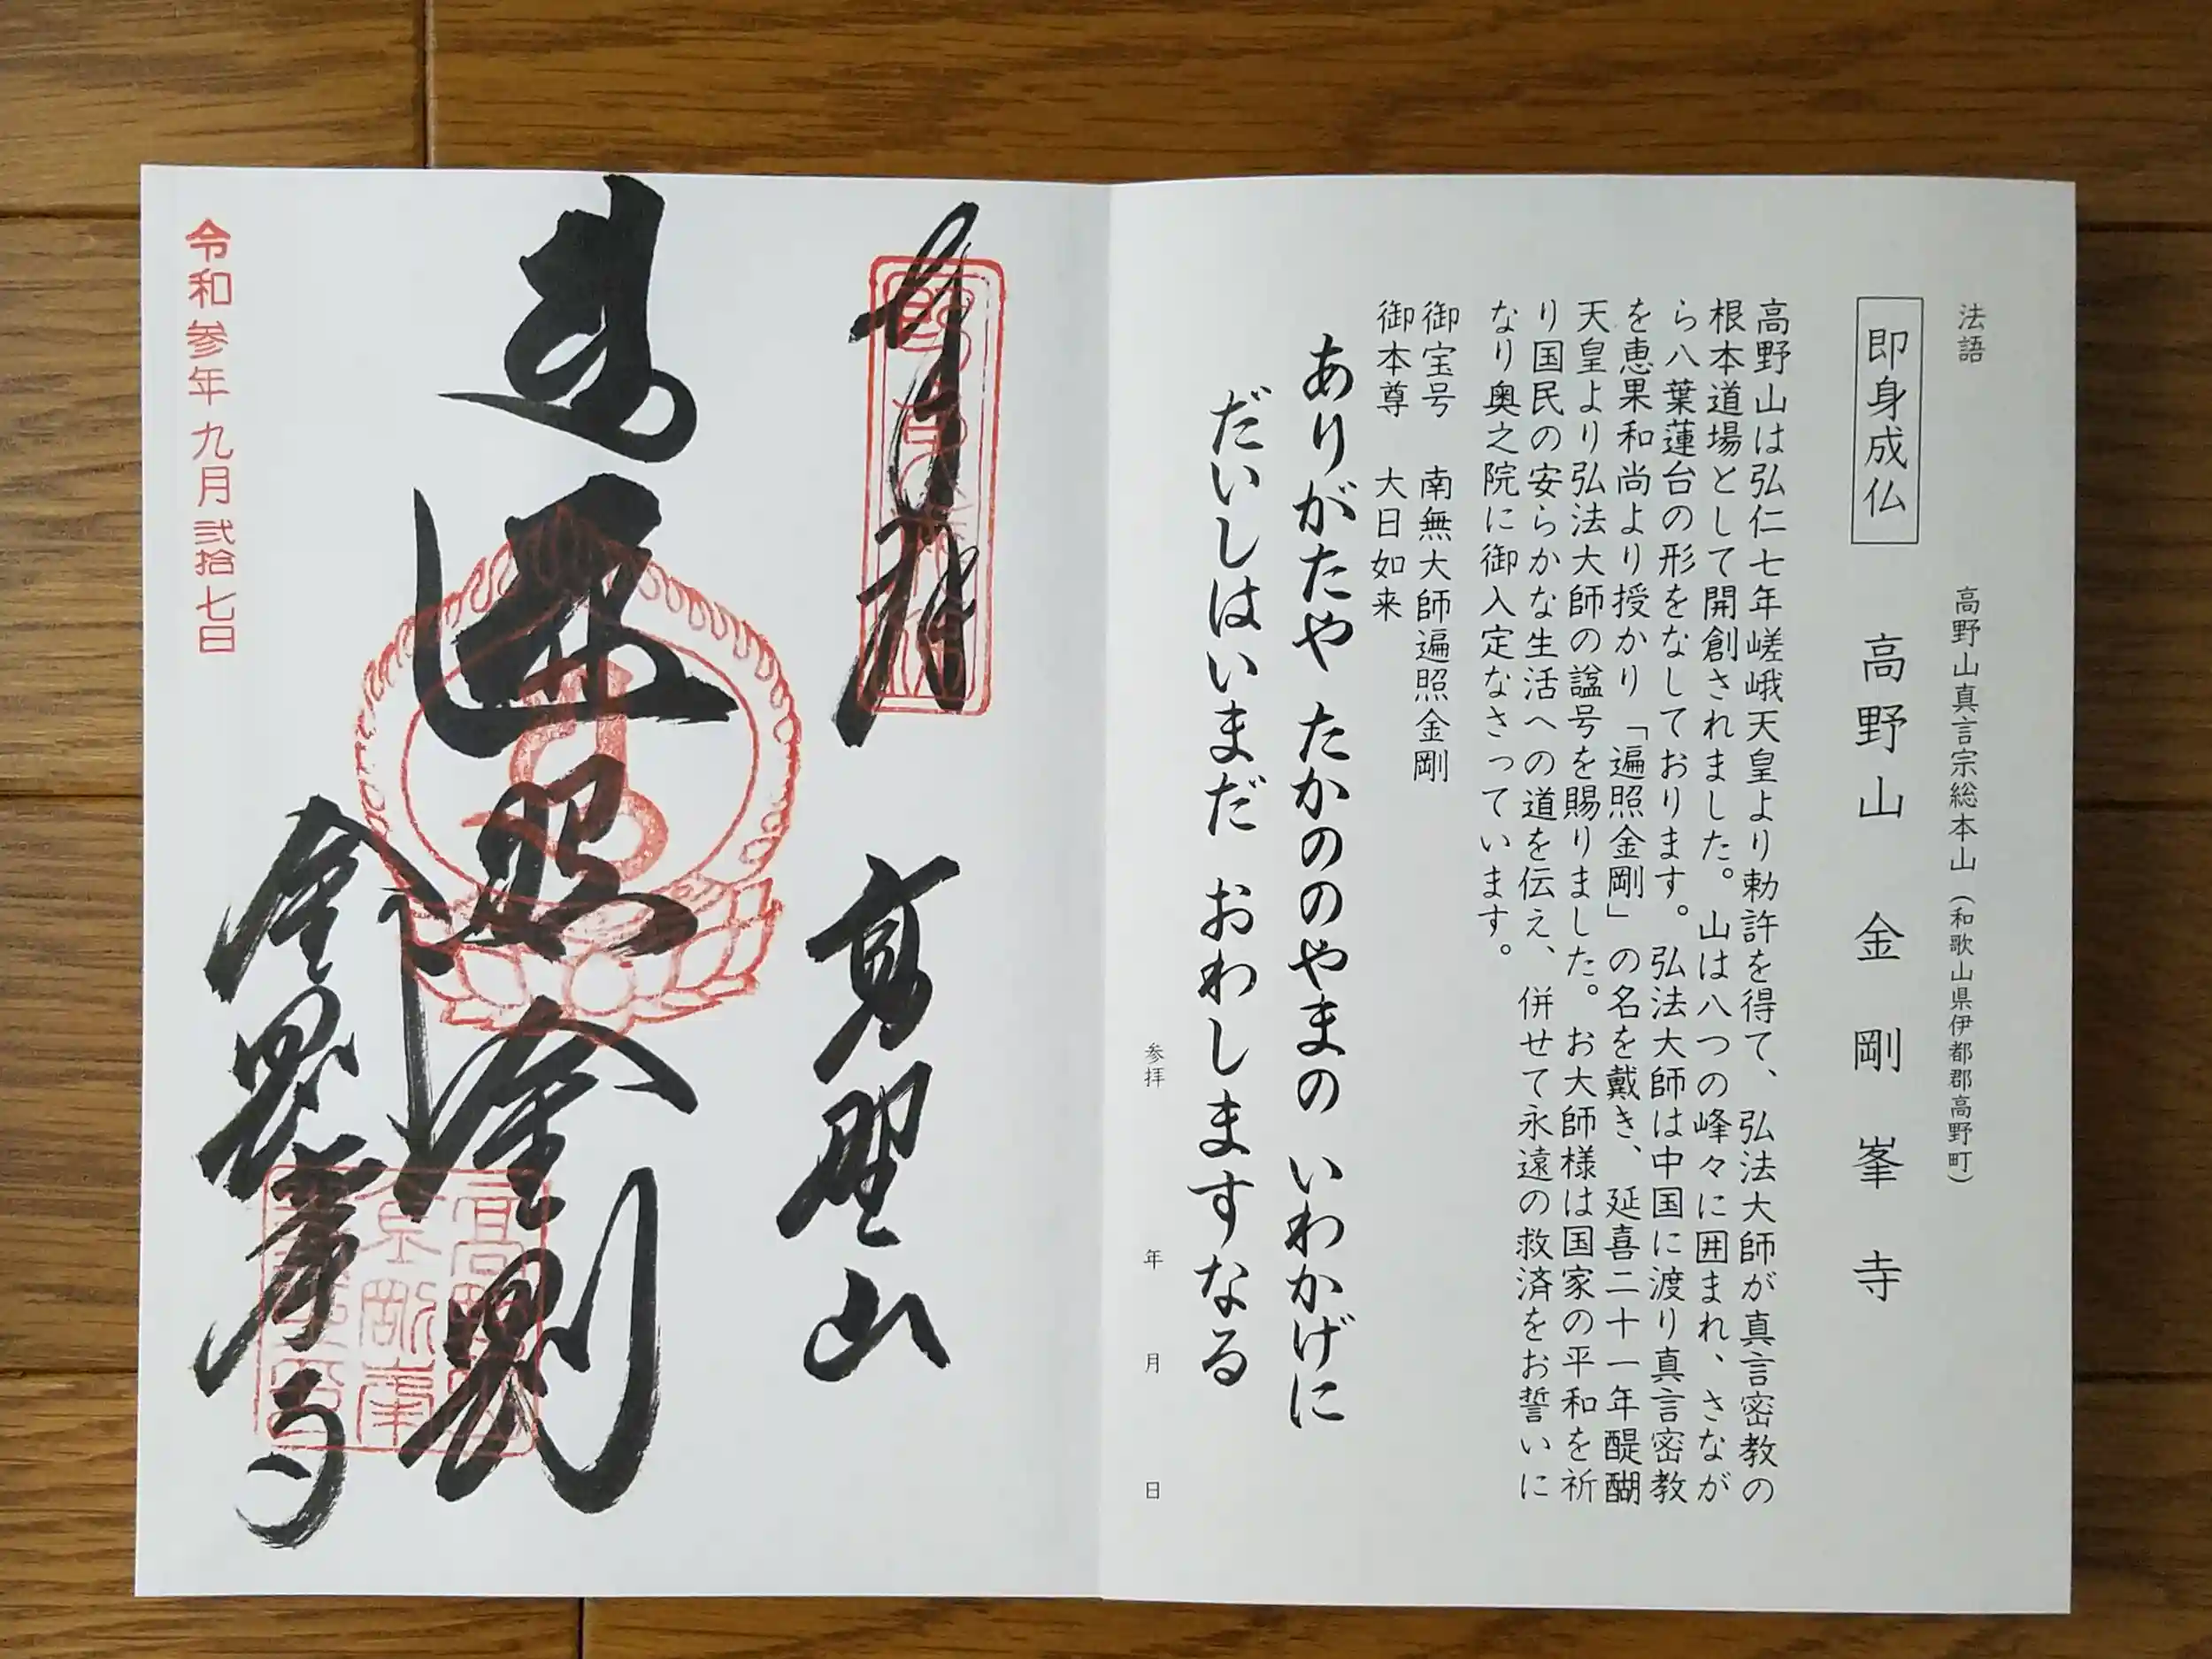 法語　高野山真言宗総本山（和歌山県伊都郡高野町）
即身成仏　高野山　金剛峯寺
高野山は弘仁七年嵯峨天皇より勅許を得て、弘法大師が真言密教の
根本道場として開創されました。山は八つの峰々に囲まれ、さなが
ら八葉蓮台の形をなしております。弘法大師は中国に渡り真言密教
を恵果和尚より授かり「遍照金剛」の名を戴き、延喜二十一年醍醐
天皇より弘法大師の諡号を賜りました。お大師様は国家の平和を祈
り国民の安らかな生活への道を伝え、併せて永遠の救済をお誓いに
なり奥之院に御入定なさっています。
御宝号　南無大師遍照金剛
御本尊　大日如来
ありがたや　たかののやまの　いわかげに
だいしはいまだ　おわしますなる
参拝　年　月　日
奉拝　高野山
遍照金剛
金剛峯寺
令和参年九月弐拾七日